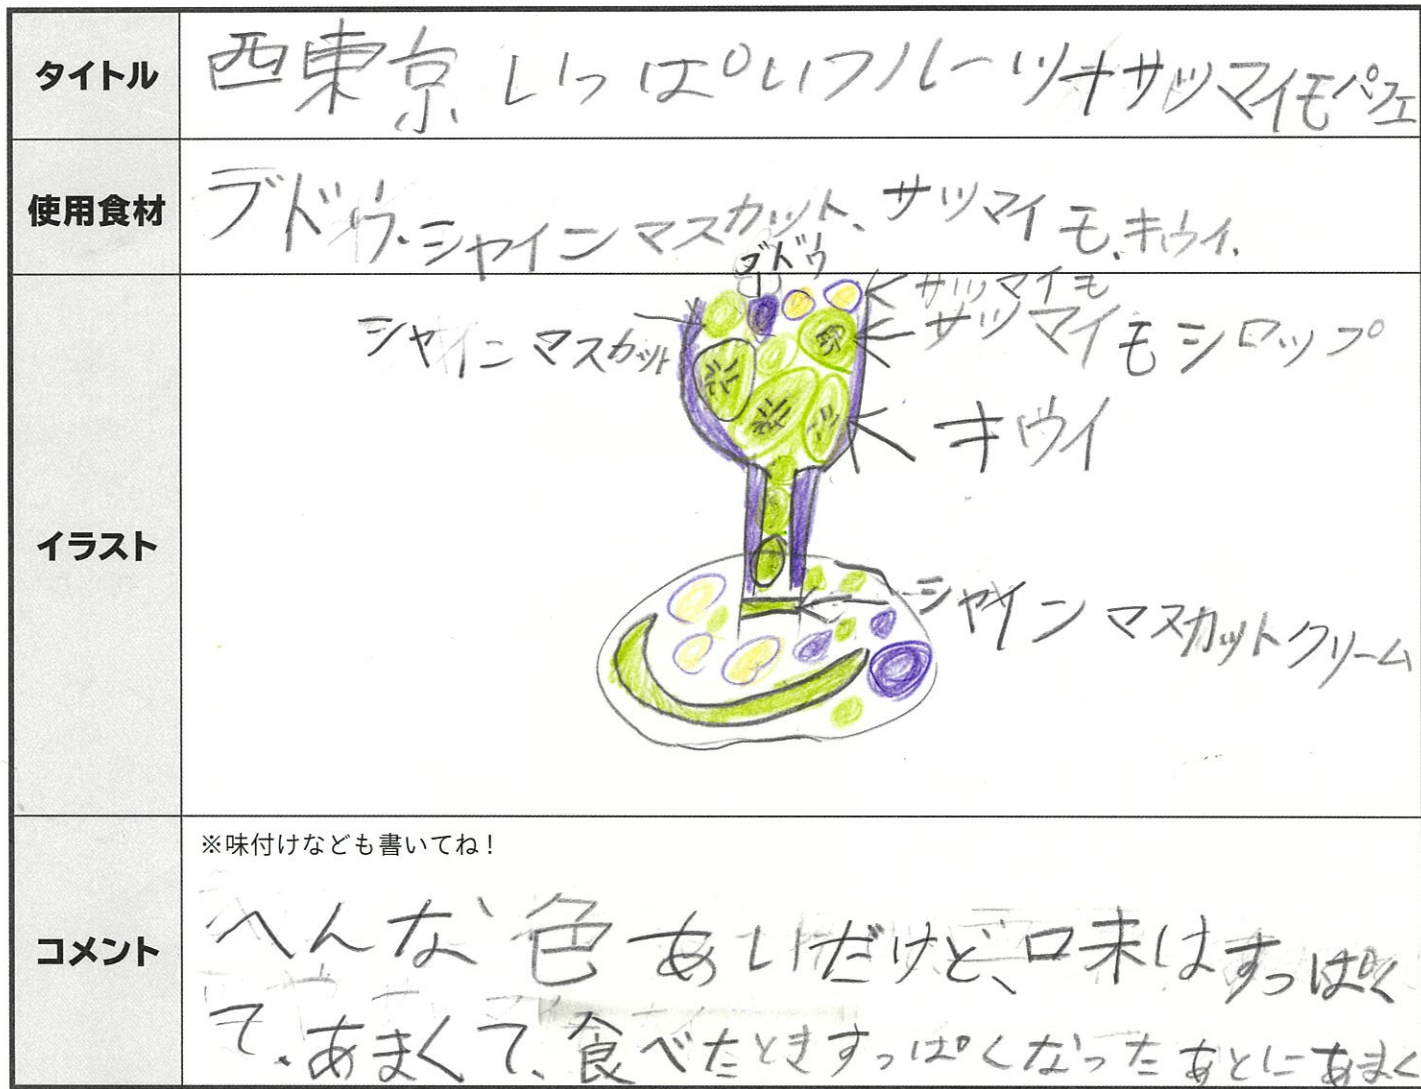 タイトル
西東京いっぱいフルーツ+サツマイモパフェ
使用食材
ブドウ.シャインマスカット、サツマイモ.キウイ.
イラスト
ブドウ
サツマイモ
シャインマスカット
サツマイモシロップ
キウイ
シャインマスカットクリーム
コメント
※味付けなども書いてね!
へんな色あいだけど、味はすっぱく
て、あまくて、食べたときすっぱくなったあとにあまく